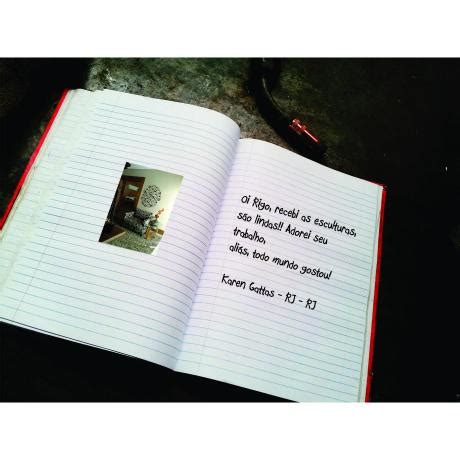 Oi Rigo, recebi as esculturas,
são lindas!! Adorei seu
trabalho,
aliás, todo mundo gostou!
Karen Gattas - RJ - RJ